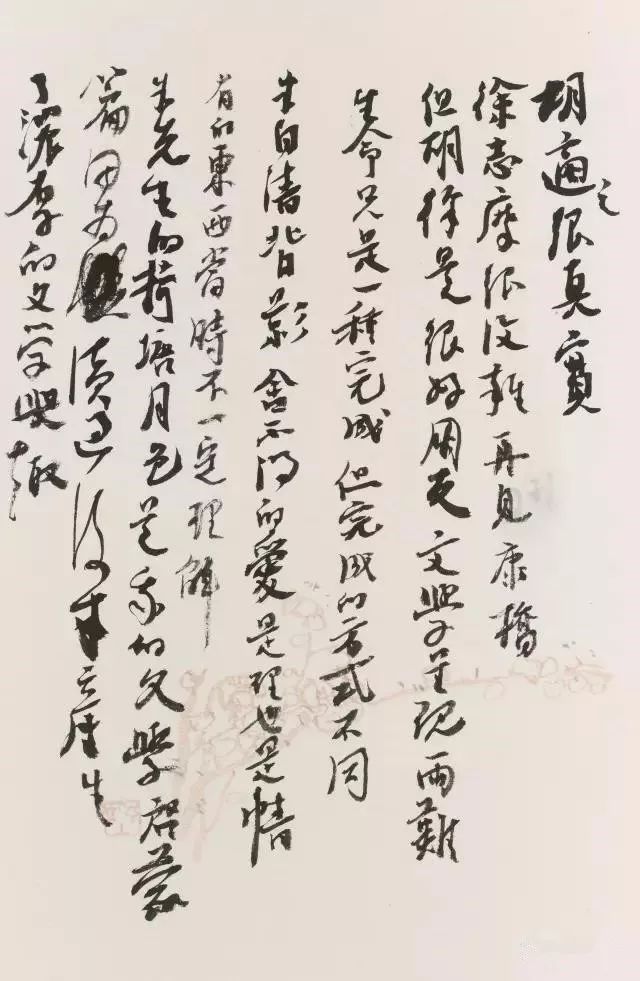 胡適之很真實
徐志摩很 再見康橋
但胡徐是很好朋友 文學呈現兩難
生命只是一種完成 但完成的方式不同
朱自清背影 舍不得的愛是理也是情
有的東西當時不一定理解
朱先生的荷塘月色是我的文學啓蒙
篇因為讀過後來產生
了濃厚的文學興趣